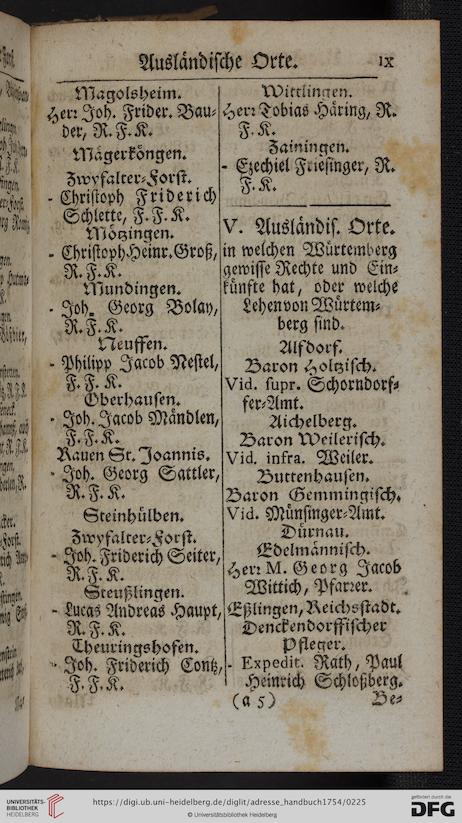 Ausländische Orte. IX
Magolsheim.
Herr Joh. Frider. Bau-
der, R. F. K.
Mägerköngen.
Zwyfalter-Forst.
- Christoph Friderich
Schlette, F. F. K.
Mötzingen.
- Christoph Heinr. Groß,
R. F. K.
Mundingen.
- Joh. Georg Bolay,
R. F. K.
Neuffen.
- Philipp Jacob Nestel,
F. F. K.
Oberhausen.
- Joh. Jacob Mändlen,
F. F. K.
Rauen St. Joannis.
- Joh. Georg Sattler,
R. F. K.
Steinhülben.
Zwyfalter-Forst.
- Joh. Friderich Seiter,
R. F. K.
Steußlingen.
- Lucas Andreas Haupt,
R. F. K.
Theuringshofen.
- Joh. Friderich Contz,
F. F. K.
Wittlingen.
Herr Tobias Häring, R.
F. K.
Zainingen.
- Ezechiel Friesinger, R.
F. K.
V. Ausländis. Orte.
in welchen Würtemberg
gewisse Rechte und Ein-
künfte hat, oder welche
Lehen von Würtem-
berg sind.
Alfdorf.
Baron Holtzisch.
Vid. supr. Schorndorf-
fer-Amt.
Aichelberg.
Baron Weilerisch.
Vid. infra. Weiler.
Buttenhausen.
Baron Gemmingisch.
Vid. Münsinger-Amt.
Dürnau.
Edelmännisch.
Herr M. Georg Jacob
Wittich, Pfarrer.
Eßlingen, Reichsstadt.
Denckendorffischer
Pfleger.
- Expedit. Rath, Paul
Heinrich Schloßberg.
(a 5) Be-
UNIVERSITÄTS-
BIBLIOTHEK
HEIDELBERG
https://digi.ub.uni-heidelberg.de/diglit/adresse_handbuch1754/0225
© Universitätsbibliothek Heidelberg
gefördert durch die
DFG